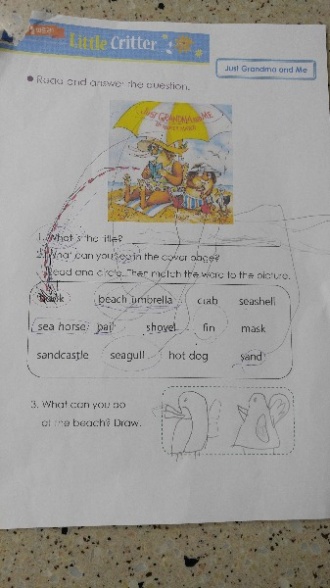 Little Critter
Just Grandma and Me
Read and answer the question.
JUST GRANDMA AND ME
1. What is the title?
2. What can you see in the cover page?
Read and circle. Then match the word to the picture.
book beach umbrella crab seashell
sea horse pail shovel fin mask
sandcastle seagull hot dog sand
3. What can you do
at the beach? Draw.